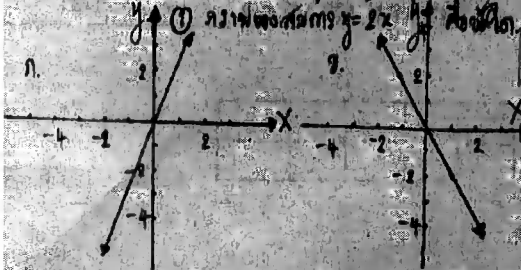 ① กราฟของสมการ y = 2x คือข้อใด
ก.
y
2
-4 -2 2 X
-4
ข.
y
2
-4 -2 2 X
-2
-4